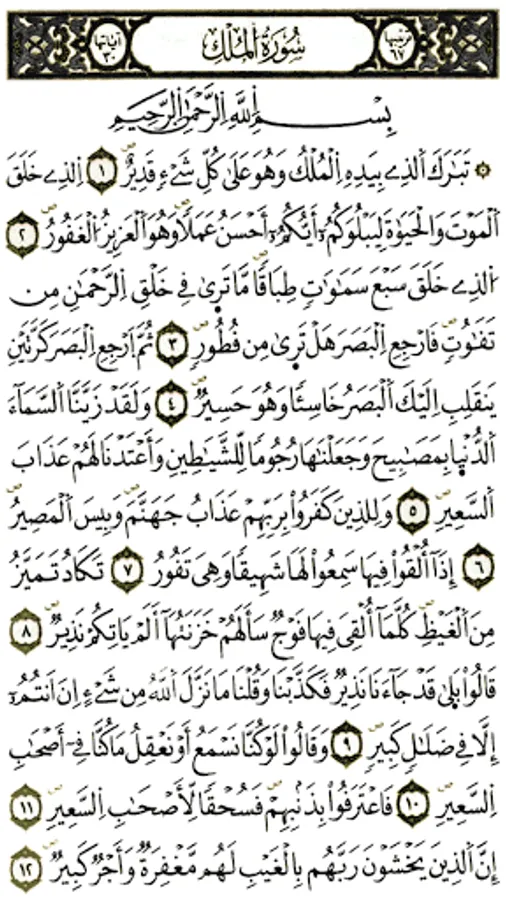 ترتيبها ٦٧ سُورَةُ الْمُلْكِ آياتها ٣٠
بِسْمِ اِللَّهِ اِلرَّحْمَٰنِ اِلرَّحِيمِ
تَبَٰرَكَ اَلذِے بِيَدِهِ اِلْمُلْكُ وَهُوَ عَلَىٰ كُلِّ شَےْءٖ قَدِيرٌ ١ اِلذِے خَلَقَ
اَلْمَوْتَ وَالْحَيَوٰةَ لِيَبْلُوَكُمُۥٓ أَيُّكُمُۥٓ أَحْسَنُ عَمَلًا وَهُوَ اَلْعَزِيزُ اُلْغَفُورُ ٢
اُلذِے خَلَقَ سَبْعَ سَمَٰوَٰتٖ طِبَاقًا مَّا تَرٜىٰ فِے خَلْقِ اِلرَّحْمَٰنِ مِن
تَفَٰوُتٖ فَارْجِعِ اِلْبَصَرَ هَلْ تَرٜىٰ مِن فُطُورٖ ٣ ثُمَّ اَرْجِعِ اِلْبَصَرَ كَرَّتَيْنِ
يَنقَلِبِ اِلَيْكَ اَلْبَصَرُ خَاسِئًا وَهُوَ حَسِيرٌ ٤ وَلَقَدْ زَيَّنَّا اَلسَّمَآءَ
اَلدُّنْيٜا بِمَصَٰبِيحَ وَجَعَلْنَٰهَا رُجُومًا لِّلشَّيَٰطِينِ وَأَعْتَدْنَا لَهُمْ عَذَابَ
اَلسَّعِيرِ ٥ وَلِلذِينَ كَفَرُواْ بِرَبِّهِمْ عَذَابُ جَهَنَّمَ وَبِيسَ اَلْمَصِيرُ
٦ إِذَآ أُلْقُواْ فِيهَا سَمِعُواْ لَهَا شَهِيقًا وَهِيَ تَفُورُ ٧ تَكَادُ تَمَيَّزُ
مِنَ اَلْغَيْظِ كُلَّمَآ أُلْقِيَ فِيهَا فَوْجٌ سَأَلَهُمْ خَزَنَتُهَآ أَلَمْ يَاتِكُمْ نَذِيرٌ ٨
قَالُواْ بَلَىٰ قَدْ جَآءَنَا نَذِيرٌ فَكَذَّبْنَا وَقُلْنَا مَا نَزَّلَ اَللَّهُ مِن شَےْءٍ اِنَ اَنتُمُۥٓ
إِلَّا فِے ضَلَٰلٖ كَبِيرٖ ٩ وَقَالُواْ لَوْ كُنَّا نَسْمَعُ أَوْ نَعْقِلُ مَا كُنَّا فِےٓ أَصْحَٰبِ
اِلسَّعِيرِ ١٠ فَاعْتَرَفُواْ بِذَنۢبِهِمْ فَسُحْقًا لِّأَصْحَٰبِ اِلسَّعِيرِ ١١
إِنَّ اَلذِينَ يَخْشَوْنَ رَبَّهُم بِالْغَيْبِ لَهُم مَّغْفِرَةٌ وَأَجْرٌ كَبِيرٌ ١٢